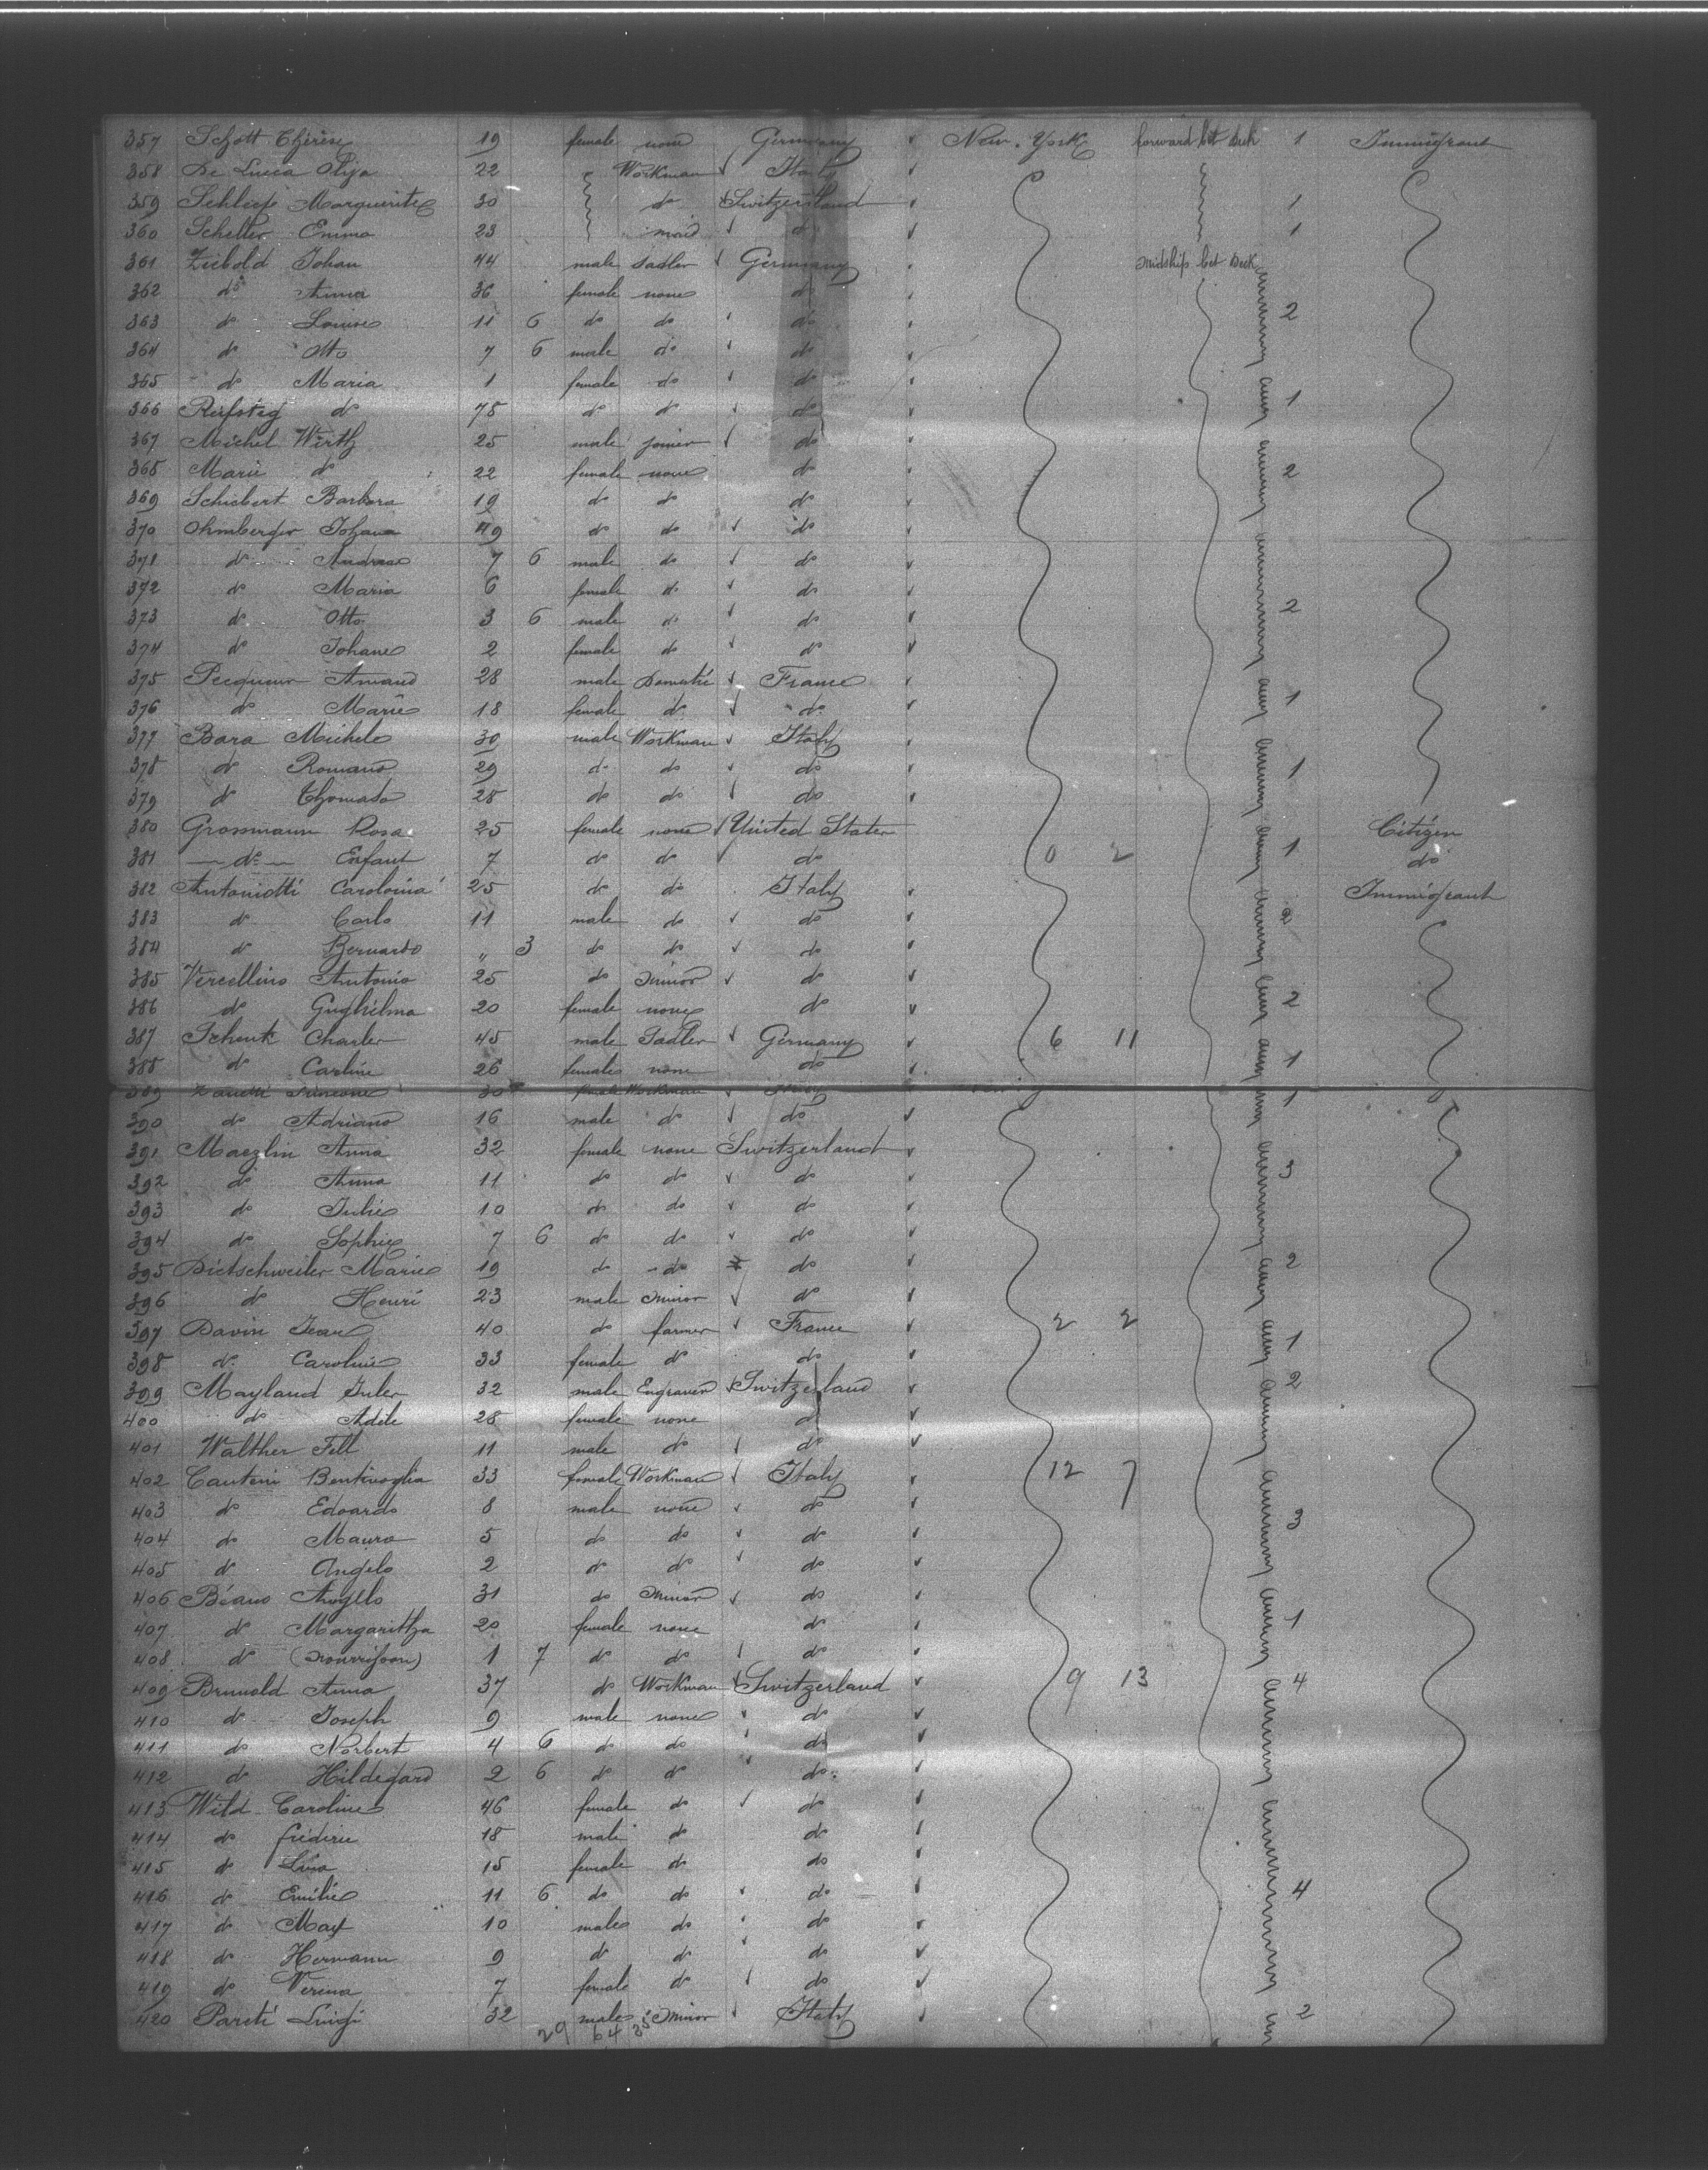 357 Schott Thérèse 19 female none Germany New-York forward bet deck 1 Immigrant
358 De Lucia 22 Workman Italy
359 Marguerite 30 do Switzerland 1
360 Scheller Emma 23 maid do 1
361 Ziebold Johan 44 male Sadler Germany midship bet deck
362 do Anna 36 female none do
363 do Louise 11 6 do do do 2
364 do Otto 7 6 male do do
365 do Maria 1 female do do
366 Reifsteg do 75 do do do 1
367 Michel Wirth 25 male joiner do
368 Marie do 22 female none do 2
369 Schubert Barbara 19 do do do
370 Johana 49 do do do
371 do Andreas 7 6 male do do
372 do Maria 6 female do do
373 do Otto 3 6 male do do 2
374 do Johane 2 female do do
375 Pecqueur Amand 28 male France 1
376 do Marie 18 female do do
377 Bara Michele 30 male Workman Italy
378 do Romano 29 do do do 1
379 do Thomaso 28 do do do
380 Grossmann Rosa 25 female none United States Citizen
381 do Enfant 7 do do do 0 2 1 do
382 Antoniotti Carolonia 25 do do Italy Immigrant
383 do Carlo 11 male do do 2
384 do Bernardo " 3 do do do
385 Vercellino Antonio 25 do minor do
386 do Guglielma 20 female none do 2
387 Schenk Charles 45 male Sadler Germany 6 11
388 do Carline 26 female none do 1
389 Zanetti Simeone 30 female Workman Italy 1
390 do Adriano 16 male do do
391 Maezlin Anna 32 female none Switzerland
392 do Anna 11 do do do 3
393 do Julie 10 do do do
394 do Sophie 7 6 do do do
395 Dietschweiler Marie 19 do do do 2
396 do Henri 23 male minor do
397 Davin Jean 40 do farmer France 2 2
398 do Caroline 33 female do do 1
399 Mayland Jules 32 male Engraver Switzerland 2
400 do Adèle 28 female none do
401 Walther Fell 11 male do do
402 Cantoni Bentivoglia 33 female Workman Italy 12 7
403 do Edoardo 8 male none do 3
404 do Mauro 5 do do do
405 do Angelo 2 do do do
406 Béano Angello 31 do minor do
407 do Margarittza 20 female none do 1
408 do (nourrisson) 1 7 do do do
409 Brunold Anna 37 do Workman Switzerland 9 13 4
410 do Joseph 9 male none do
411 do Norbert 4 6 do do do
412 do Hildegard 2 6 do do do
413 Wild Caroline 46 female do do
414 do frédéric 18 male do do
415 do Lina 15 female do do
416 do Emilie 11 6 do do do 4
417 do Max 10 male do do
418 do Hermann 9 do do do
419 do Verena 7 female do do
420 Pareti Luigi 32 male minor Italy 2
29 64